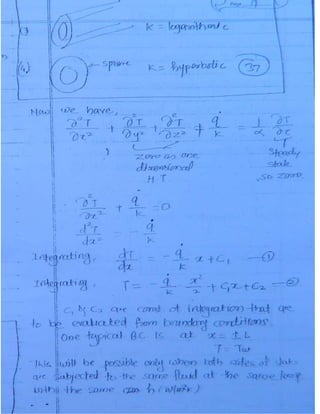 K = logarithmic
(4) sphere K = hyperbolic (37)
Now we have,
∂²T/∂x² + ∂²T/∂y² + ∂²T/∂z² + q̇/k = 1/α ∂T/∂τ
zero as one Steady
dimensional state
H T so zero.
∴ ∂²T/∂x² + q̇/k = 0
d²T/dx² = - q̇/k
Integrating, dT/dx = - q̇/k x + C₁ —①
Integrating, T = - q̇/k x²/2 + C₁x + C₂ —②
C₁ & C₂ are const of integration that are
to be evaluated from boundary conditions.
One typical BC is at x = ± L
T = Tw
This will be possible only when both sides of slab
are subjected to the same fluid at the same temp
with the same h (W/m²k)